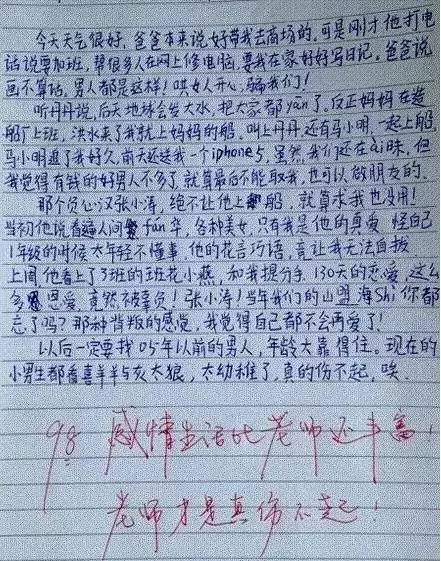 今天天气很好，爸爸本来说好带我去商场的。可是刚才他打电
话说要加班，帮很多人在网上修电脑，要我在家好好写日记。爸爸说
画不算话，男人都是这样！哄女人开心，骗我们！
听丹丹说，后天地球会发大水，把大家都yān了。反正妈妈在造
船厂上班，洪水来了我就上妈妈的船，叫上丹丹还有马小明，一起上船。
马小明追了我好久，前天还送我一个iphone5，虽然我们还在ài昧，但
我觉得有钱的好男人不多了，就算最后不能取我，也可以做朋友的。
那个负心汉张小涛，绝不让他上船，就算求我也没用！
当初他说看遍人间fán华，各种美女，只有我是他的真爱，怪自己
1年级的时候太年轻不懂事，他的花言巧语，竟让我无法自拔。
上周他看上了3班的班花小燕，和我提分手，130天的恋爱，这么
多恩爱，竟然被辜负！张小涛！当年我们的山盟海Shì你都
忘了吗？那种背叛的感觉，我觉得自己都不会再爱了！
以后一定要找05年以前的男人，年龄大靠得住。现在的
小男生都看喜羊羊与灰太狼，太幼稚了，真的伤不起，唉。
98 感情生活比老师还丰富！
老师才是真伤不起！